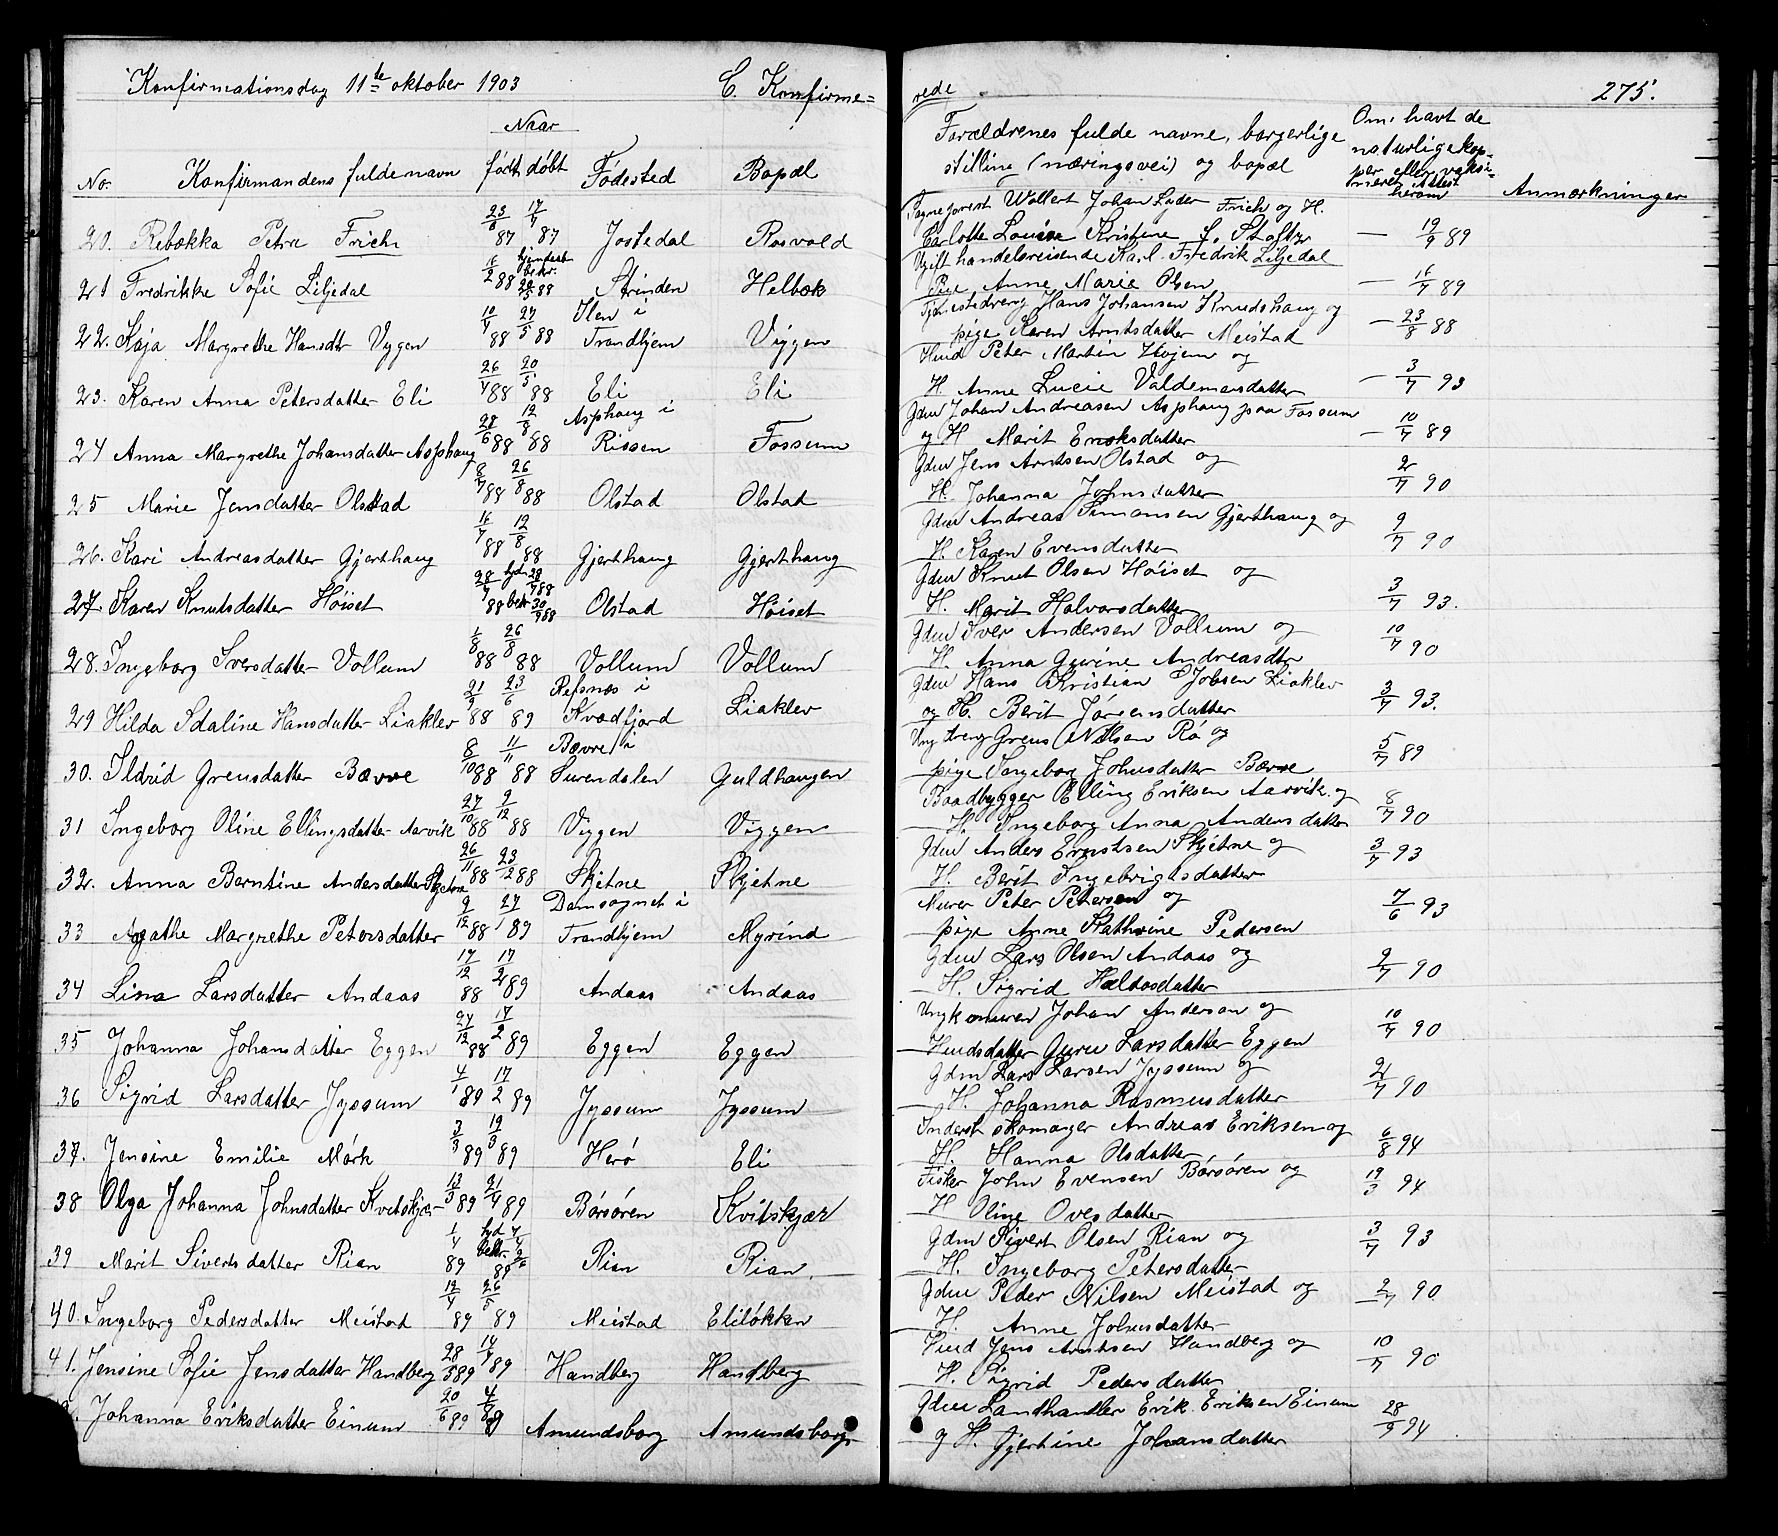 Konfirmationsdag 11te oktober 1903 C. Konfirme=
rede 275.
No. Konfirmandens fulde navn Naar født døbt Fødested Bopæl
Forældrenes fulde navne, borgerlige stilling (næringsvei) og bopæl Om: havt de naturlige kopper eller vaksineret Attest herom Anmærkninger
20. Rebækka Petra Frich 23/6 87 17/7 87 Jostedal Rosvold
Wollert Johan Lyder Frich og H.
Carlotte Louise Kristine — 19/9 89
21 Fredrikke Sofie Liljedal 16/2 88 hjemdøbt bekr. 20/5 88 Strinden Helbæk
Ugift handelsreisende Karl Fredrik Liljedal
Pige Anne Marie Olsen — 16/7 89
22. Kaja Margrethe Hansdtr Vygen 10/4 88 27/5 88 Ilen i Trondhjem Viggen
Tjenestedreng Hans Johansen Knudshaug og
pige Karen Arntsdatter Meistad — 23/8 88
23. Karen Anna Petersdatter Eli 26/4 88 20/5 88 Eli Eli
Hmd Peter Martin Hojem og
H. Anne Lucie Valdemarsdatter — 3/7 93
24 Anna Margrethe Johansdatter Asphaug 28/6 88 12/8 88 Asphaug i Rissen Fossum
Gdm Johan Andreasen Asphaug paa Fossum
og H Marit Enoksdatter — 10/7 89
25 Marie Jensdatter Olstad 8/7 88 26/8 88 Olstad Olstad
Gdm Jens Arntsen Olstad og
H. Johanna Johnsdatter 2/7 90
26. Kari Andreasdatter Gjerthaug 16/7 88 12/8 88 Gjerthaug Gjerthaug
Gdm Andreas Simonsen Gjerthaug og
H Karen Evensdatter 9/7 90
27 Karen Knutsdatter Høiset 28/7 88 hjd 29/7 88 bekr 30/9 88 Olstad Høiset
Gdm Knut Olsen Høiset og
H. Marit Halvorsdatter 3/7 93.
28. Ingeborg Iversdatter Vollum 1/8 88 26/8 88 Vollum Vollum
Gdm Iver Andersen Vollum og
H. Anna Gurine Andreasdtr 10/7 90
29 Hilda Idaline Hansdatter Liaklev 21/9 88 23/6 89 Refsnæs i Kvædfjord Liaklev
Gdm Hans Kristian Jobsen Liaklev
og H. Berit Jørensdatter 3/7 93.
30. Ildrid Grensdatter Bævre 8/10 88 11/11 88 Bævre i Surendalen Guldhaugen
Ung dreng Grens Nilsen Rø og
pige Ingeborg Johnsdatter Bævre 5/7 89
31 Ingeborg Oline Ellingsdatter Aarvik 27/10 88 9/12 88 Viggen Viggen
Baadbygger Elling Eriksen Aarvik og
H. Ingeborg Anna Andersdatter 8/7 90
32. Anna Berntine Andersdatter Skjetne 26/11 88 23/12 88 Skjetne Skjetne
Gdm Anders Erntsen Skjetne og
H. Berit Ingebrigtsdatter 3/7 93
33 Agathe Margrethe Petersdatter 9/12 88 27/1 89 Domsognet i Trondhjem Myrind
Murer Peter Petersen og
pige Anne Kathrine Pedersen 7/6 93
34 Lina Larsdatter Andaas 17/12 88 17/2 89 Andaas Andaas
Gdm Lars Olsen Andaas og
H. Sigrid Haltorsdatter 9/7 90
35 Johanna Johansdatter Eggen 27/12 88 17/2 89 Eggen Eggen
Johan Anderson og
Hmdsdatter Guru Larsdatter Eggen 10/7 90
36 Sigrid Larsdatter Jyssum 4/1 89 17/2 89 Jyssum Jyssum
Gdm Lars Larsen Jyssum og
H. Johanna Rasmusdatter 2/7 90
37. Jensine Emilie Mørk 3/3 89 19/3 89 Herø Eli
Inderst skomager Andreas Eriksen og
H. Hanna Olsdatter 6/8 94
38 Olga Johanna Johnsdatter Kvitskjær 13/3 89 21/4 89 Børsøren Kvitskjær
Fisker John Evensen Børsøren og
H Oline Ovesdatter 19/3 94
39 Marit Sivertsdatter Rian 1/4 89 hjd 7/4 bekr. 89 Rian Rian.
Gdm Sivert Olsen Rian og
H. Ingeborg Petersdatter 3/7 93
40. Ingeborg Pedersdatter Meistad 12/4 89 26/5 89 Meistad Eliløkken
Gdm Peder Nilsen Meistad og
H. Anne Johnsdatter 2/7 90
41. Jensine Sofie Jensdatter Handberg 28/5 89 14/7 89 Handberg Handberg
Hmd Jens Arntsen Handberg og
H. Sigrid Pedersdatter 10/7 90
Johanna Eriksdatter Einum 20/6 89 4/8 89 Amundsborg Amundsborg
Gdm Landhandler Erik Eriksen Einum
og H. Gjertine Johansdatter 28/9 94